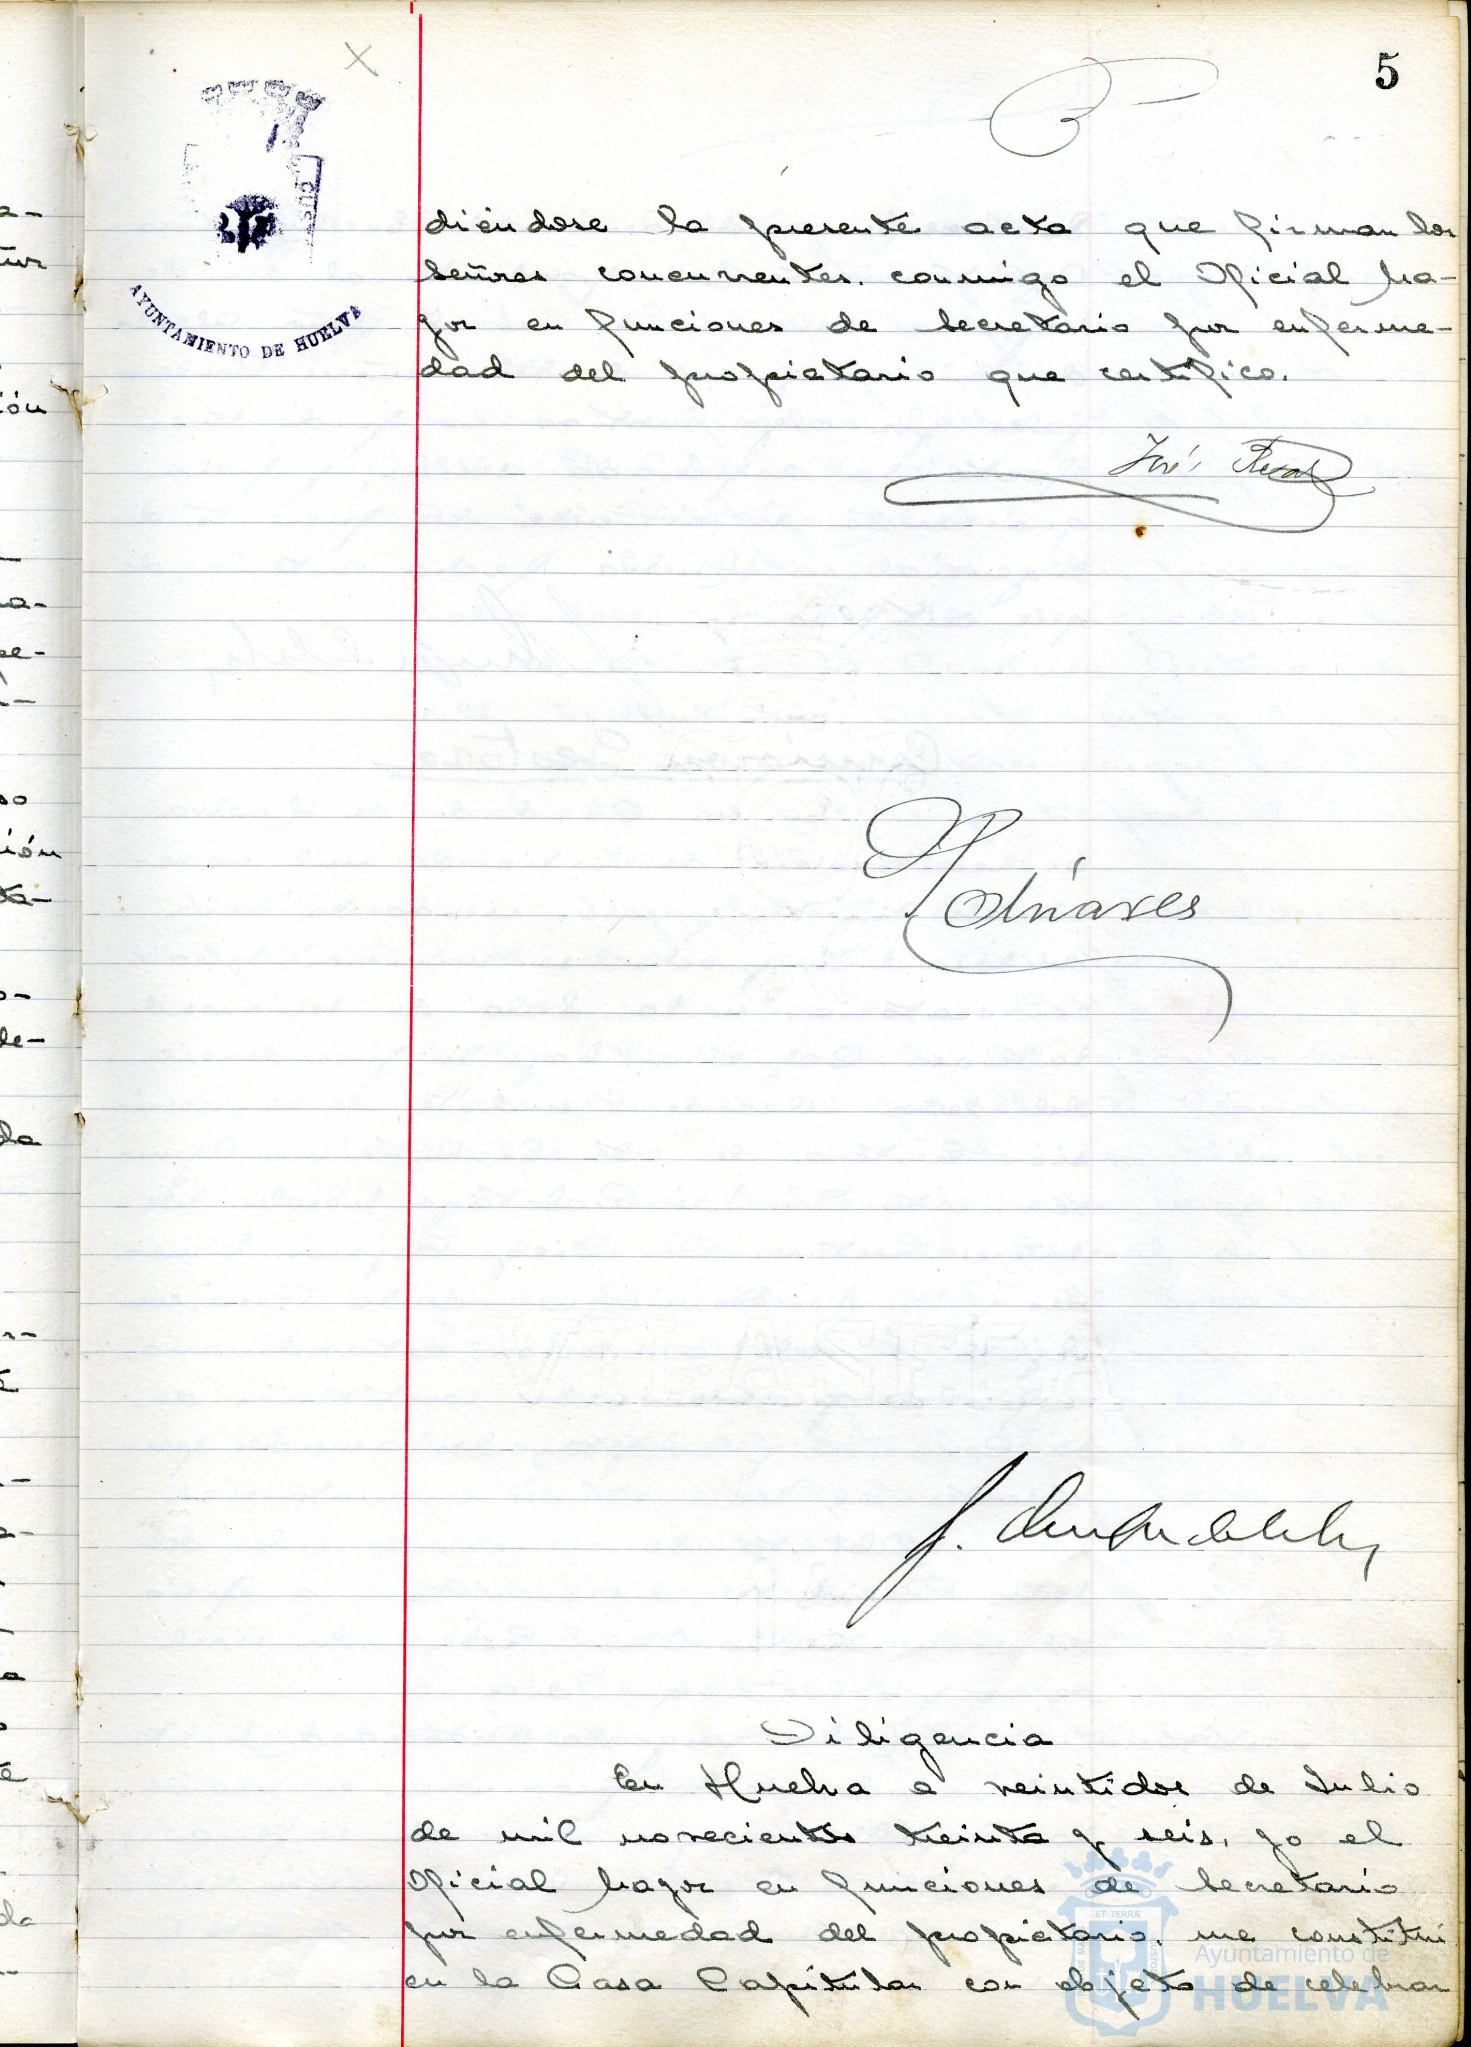 5
AYUNTAMIENTO DE HUELVA
diéndose la presente acta que firman los
señores concurrentes. conmigo el Oficial Ma-
yor en funciones de Secretario por enferme-
dad del propietario que certifico.
José
Diligencia
En Huelva a veintidos de Julio
de mil novecientos treinta y seis, yo el
Oficial Mayor en funciones de Secretario
por enfermedad del propietario, me constituí
en la Casa Capitular con objeto de celebrar
ET TERRÆ
Ayuntamiento de
HUELVA